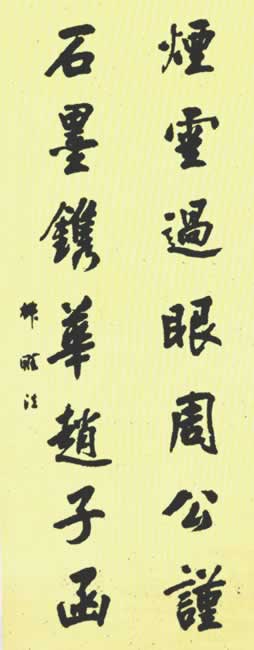 煙雲過眼周公謹
石墨鐫華趙子函